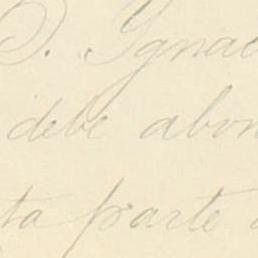 D. Ignac
debe abon
ta parte